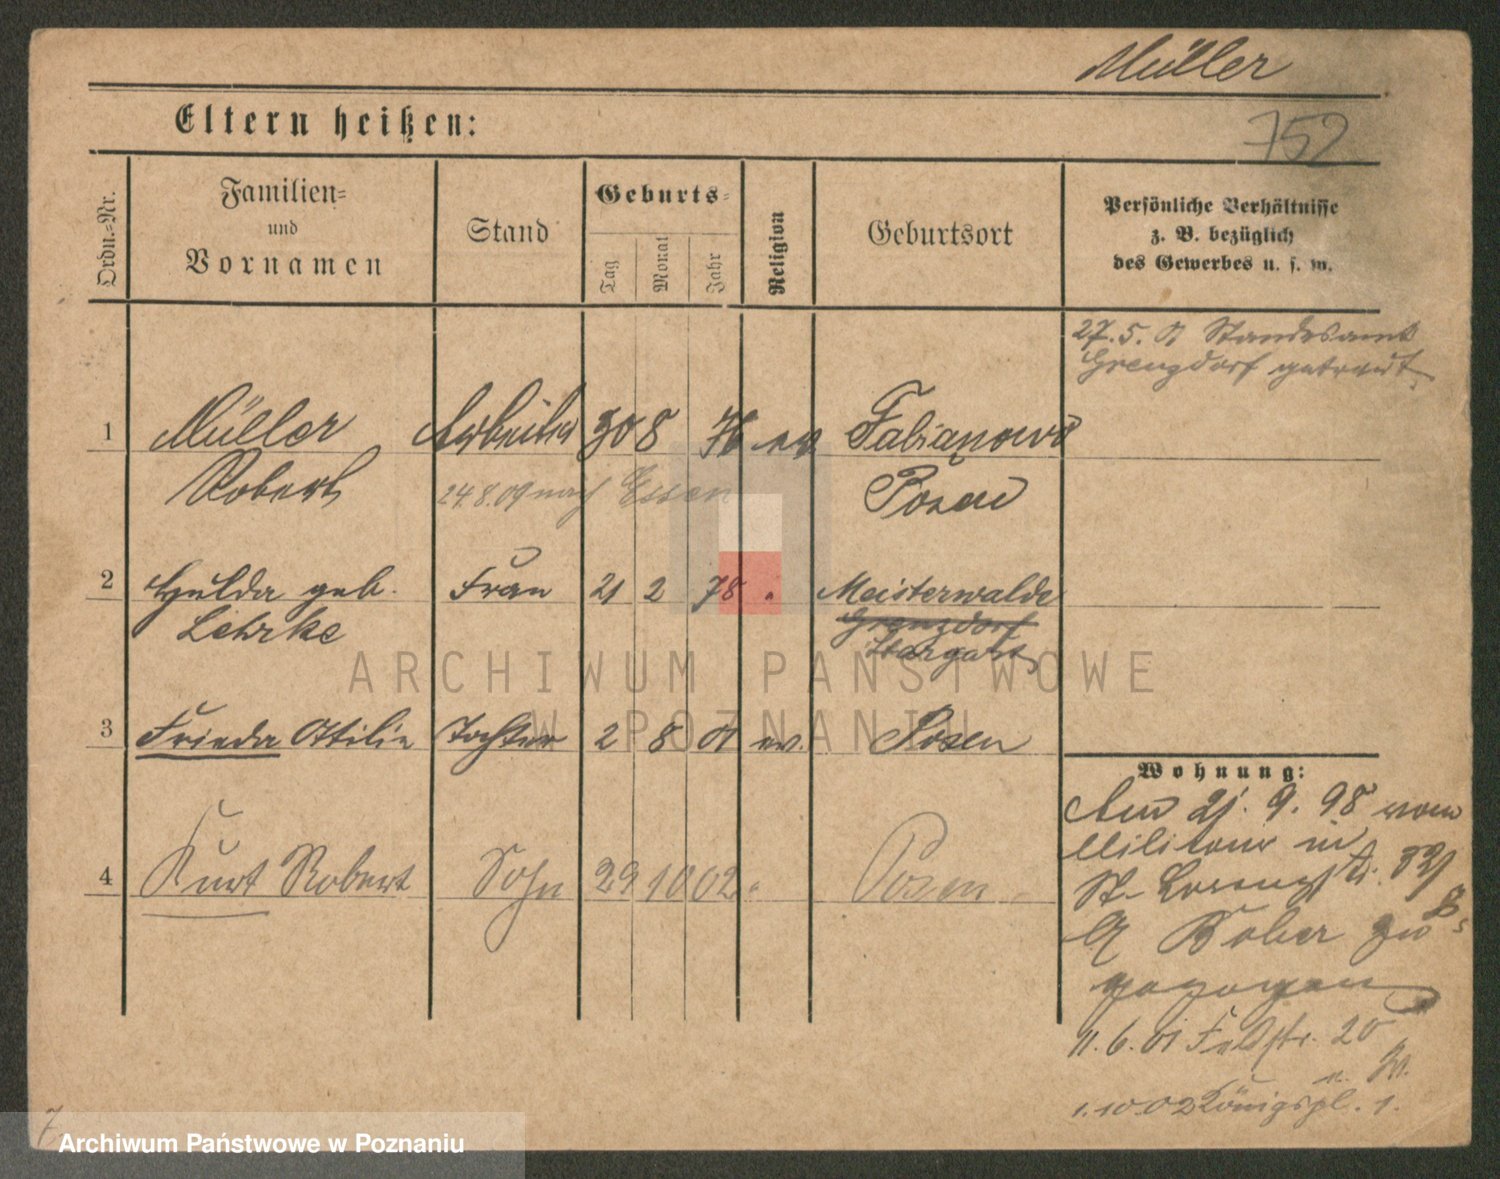 Müller
752
Eltern heißen:
Ordn.-Nr.
Familien-
und
Vornamen
Stand
Geburts-
Tag
Monat
Jahr
Religion
Geburtsort
Persönliche Verhältnisse
z. B. bezüglich
des Gewerbes u. s. w.
27. 5. 01 Standesamt
Grenzdorf getraut
1 Müller Arbeiter 30 8 76 ev. Fabianowo
Robert 24.8.09 nach Essen Posen
2 Hulda geb. Frau 21 2 78 " Meisterwalde
Lehrke Grenzdorf
Stargart
3 Frieda Ottilie Tochter 2 8 01 ev. Posen
4 Kurt Robert Sohn 29 10 02 " Posen
Wohnung:
Am 21. 9. 98 vom
Militair in
St. Lorenzstr.
Bober zu
gezogen
11. 6. 01 Feldstr. 20
1.10.02 Königspl. 1.
7
ARCHIWUM PAŃSTWOWE
W POZNANIU
Archiwum Państwowe w Poznaniu